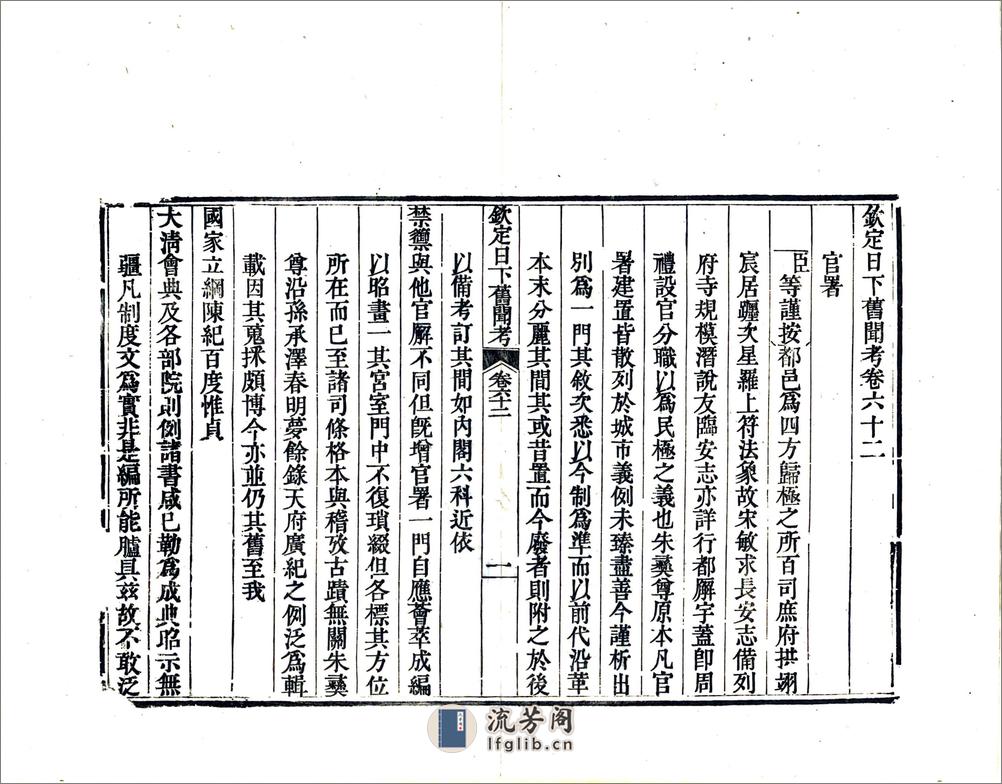 欽定日下舊聞考卷六十二
官署
臣等謹按都邑爲四方歸極之所百司庶府拱翊
宸居躔次星羅上符法象故宋敏求長安志備列
府寺規模潛說友臨安志亦詳行都廨宇蓋卽周
禮設官分職以爲民極之義也朱彝尊原本凡官
署建置皆散列於城市義例未臻盡善今謹析出
別爲一門其敘次悉以今制爲準而以前代沿革
本末分麗其間其或昔置而今廢者則附之於後
欽定日下舊聞考 卷六十二 一
以備考訂其間如內閣六科近依
禁籞與他官廨不同但旣增官署一門自應薈萃成編
以昭畫一其宮室門中不復瑣綴但各標其方位
所在而已至諸司條格本與稽攷古蹟無關朱彝
尊沿孫承澤春明夢餘錄天府廣紀之例泛爲輯
載因其蒐採頗博今亦並仍其舊至我
國家立綱陳紀百度惟貞
大淸會典及各部院則例諸書咸已勒爲成典昭示無
疆凡制度文爲實非是編所能臚具茲故不敢泛
流芳阁
lfglib.cn